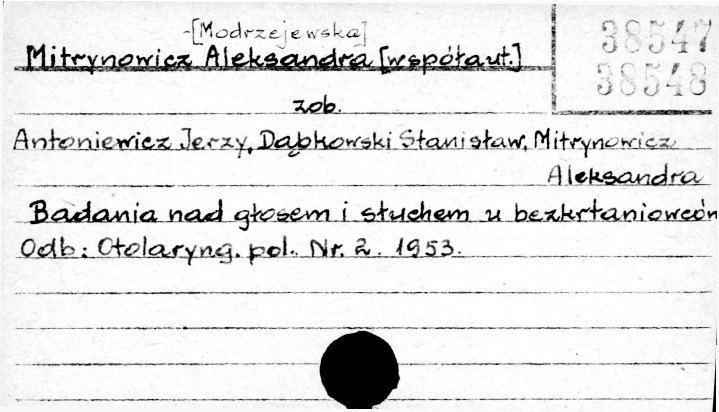 -[Modrzejewska]
Mitrynowicz Aleksandra [współaut.]
38547
38548
zob.
Antoniewicz Jerzy, Dąbkowski Stanisław, Mitrynowicz
Aleksandra
Badania nad głosem i słuchem u bezkrtaniowców
Odb: Otolaryng. pol. Nr. 2. 1953.